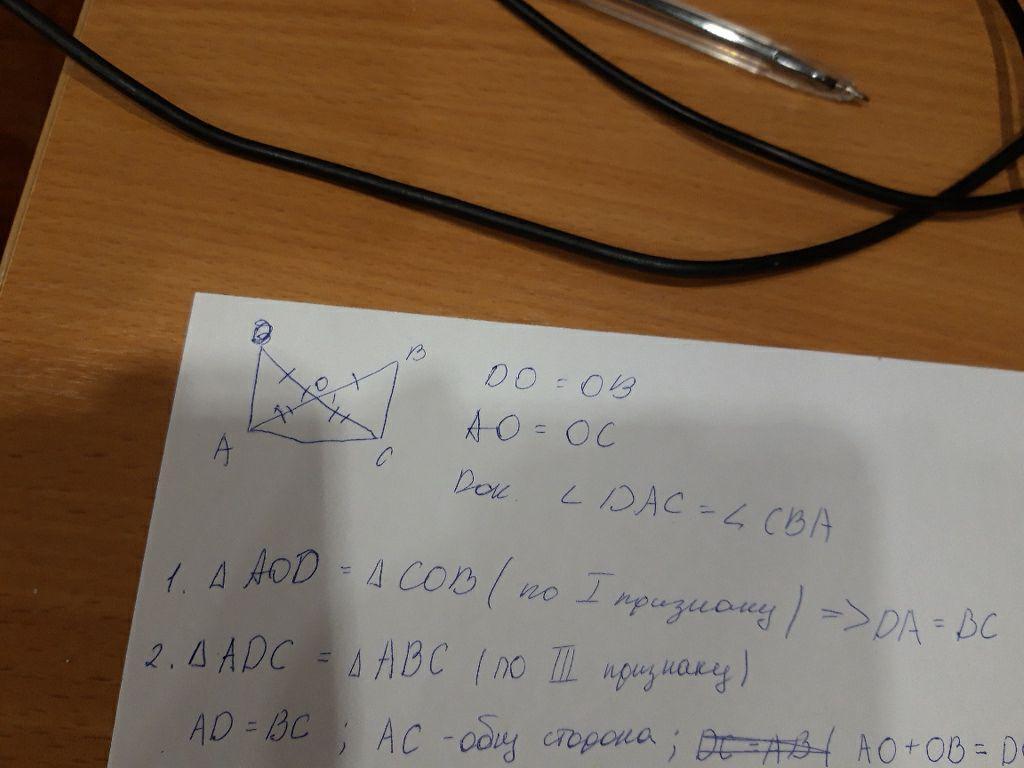 D
B
O
A
C
DO = OB
AO = OC
Док. ∠ DAC = ∠ CBA
1. Δ AOD = Δ COB ( по I признаку ) => DA = BC
2. Δ ADC = Δ ABC ( по III признаку )
AD = BC ; AC - общ сторона ; DC = AB ( AO + OB = DO